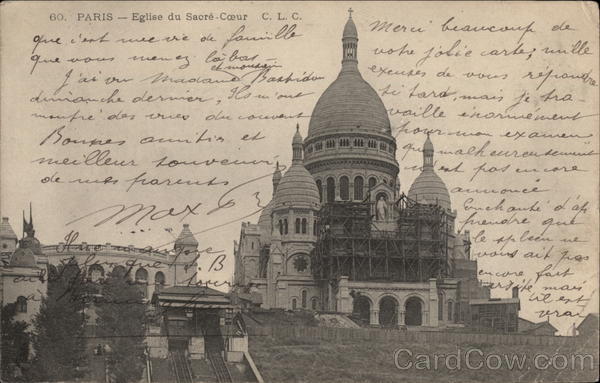 60. PARIS — Eglise du Sacré-Cœur C. L. C.
Merci beaucoup de
votre jolie carte, mille
excuses de vous répondre
si tard, mais je tra-
vaille énormément
pour mon examen
que malheureusement
n'est pas encore
annoncé
Enchanté d'ap
prendre que
le spleen ne
vous ait pas
encore fait
mais il est
vrai
que c'est une vie de famille
que vous menez là bas
J'ai vu Madame Bastidon
et
dimanche dernier, Ils m'ont
montré des vues du couvent
Bonnes amitiés et
meilleur souvenir
de mes parents
Max
B
CardCow.com